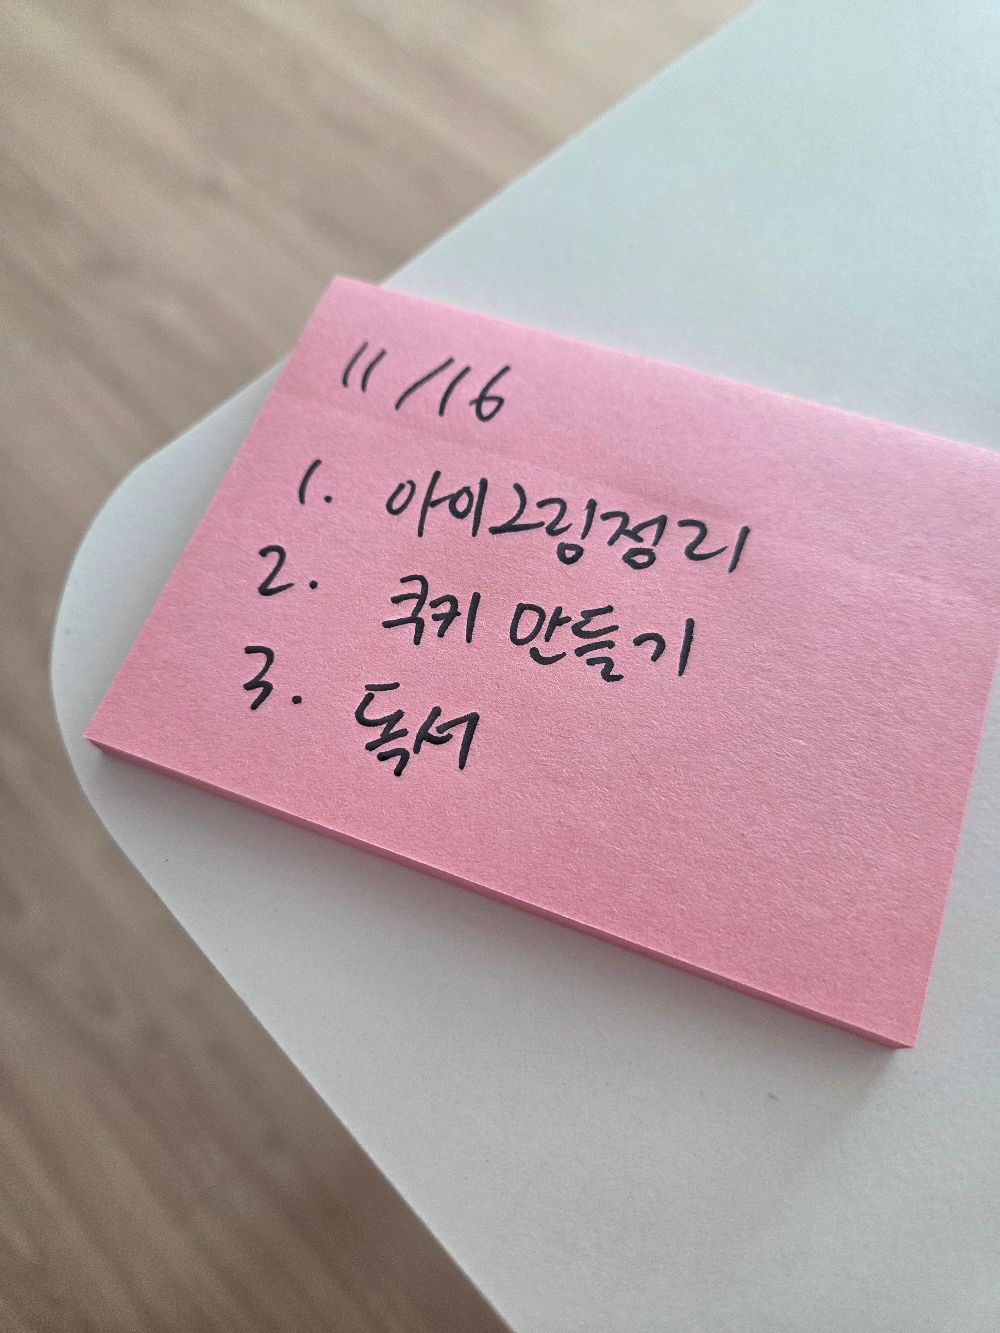 11/16
1. 아이그림정리
2. 쿠키 만들기
3. 독서